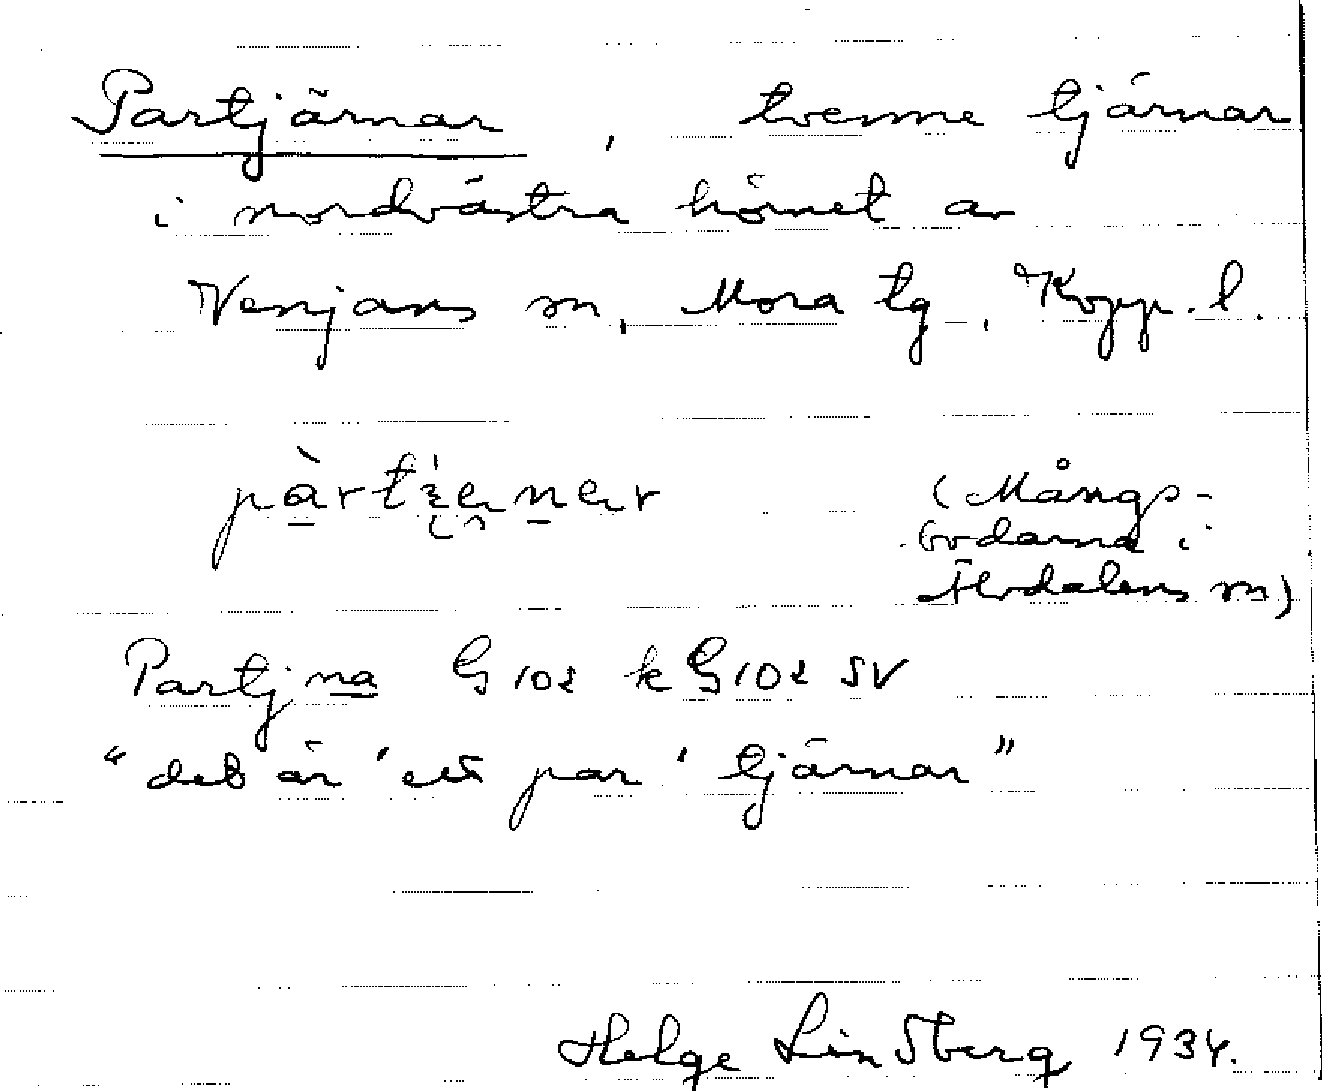 Partjärnar, tvenne tjärnar
i nordvästra hörnet av
Venjans sn, Mora tg., Kopp. l.
(Mångs-
bodarna i
Älvdalens sn)
Partjna G 102 k G 102 SV
"det är 'ett par' tjärnar"
Helge Lindberg 1934.